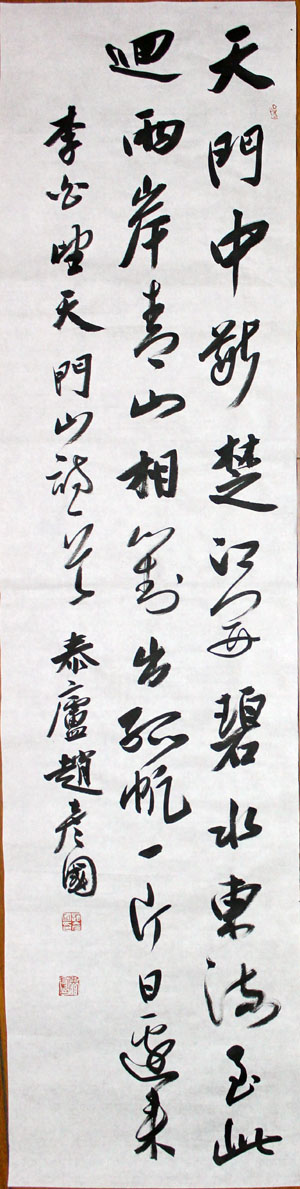 天門中斷楚江開碧水東流至此
迴兩岸青山相對出孤帆一片日邊來
李白望天門山詩一首 泰廬趙彥國